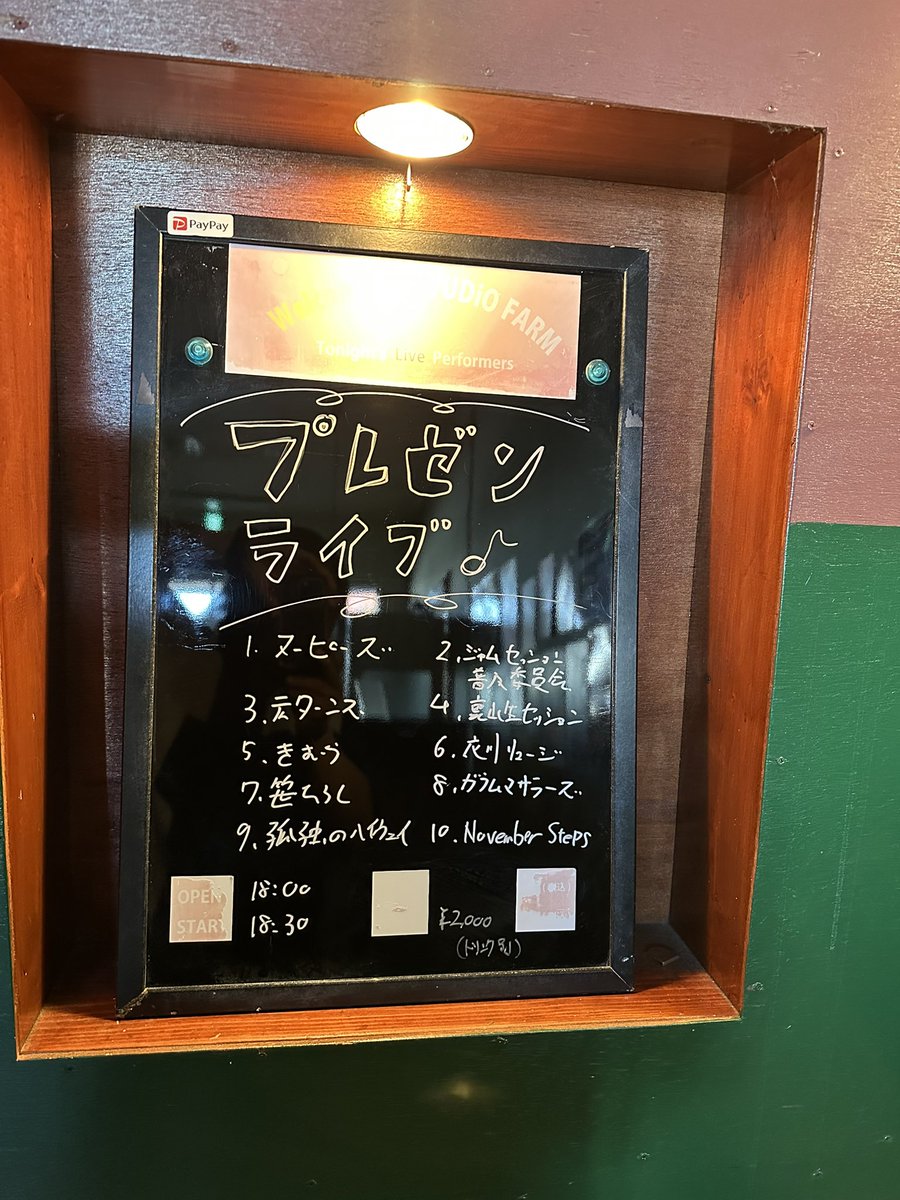 PayPay
STUDIO FARM
Tonight's Live Performers
プレゼン
ライブ♪
1. ヌーピーズ
2. ジャムセッション
普及委員会
3. 広ターンズ
4. 裏山生セッション
5. きむう
6. 衣川リュージ
7. 笹もらし
8. ガラムマサラーズ
9. 孤独のハイウェイ
10. November Steps
OPEN 18:00
START 18:30
¥2,000
(ドリンク別)
(税込)